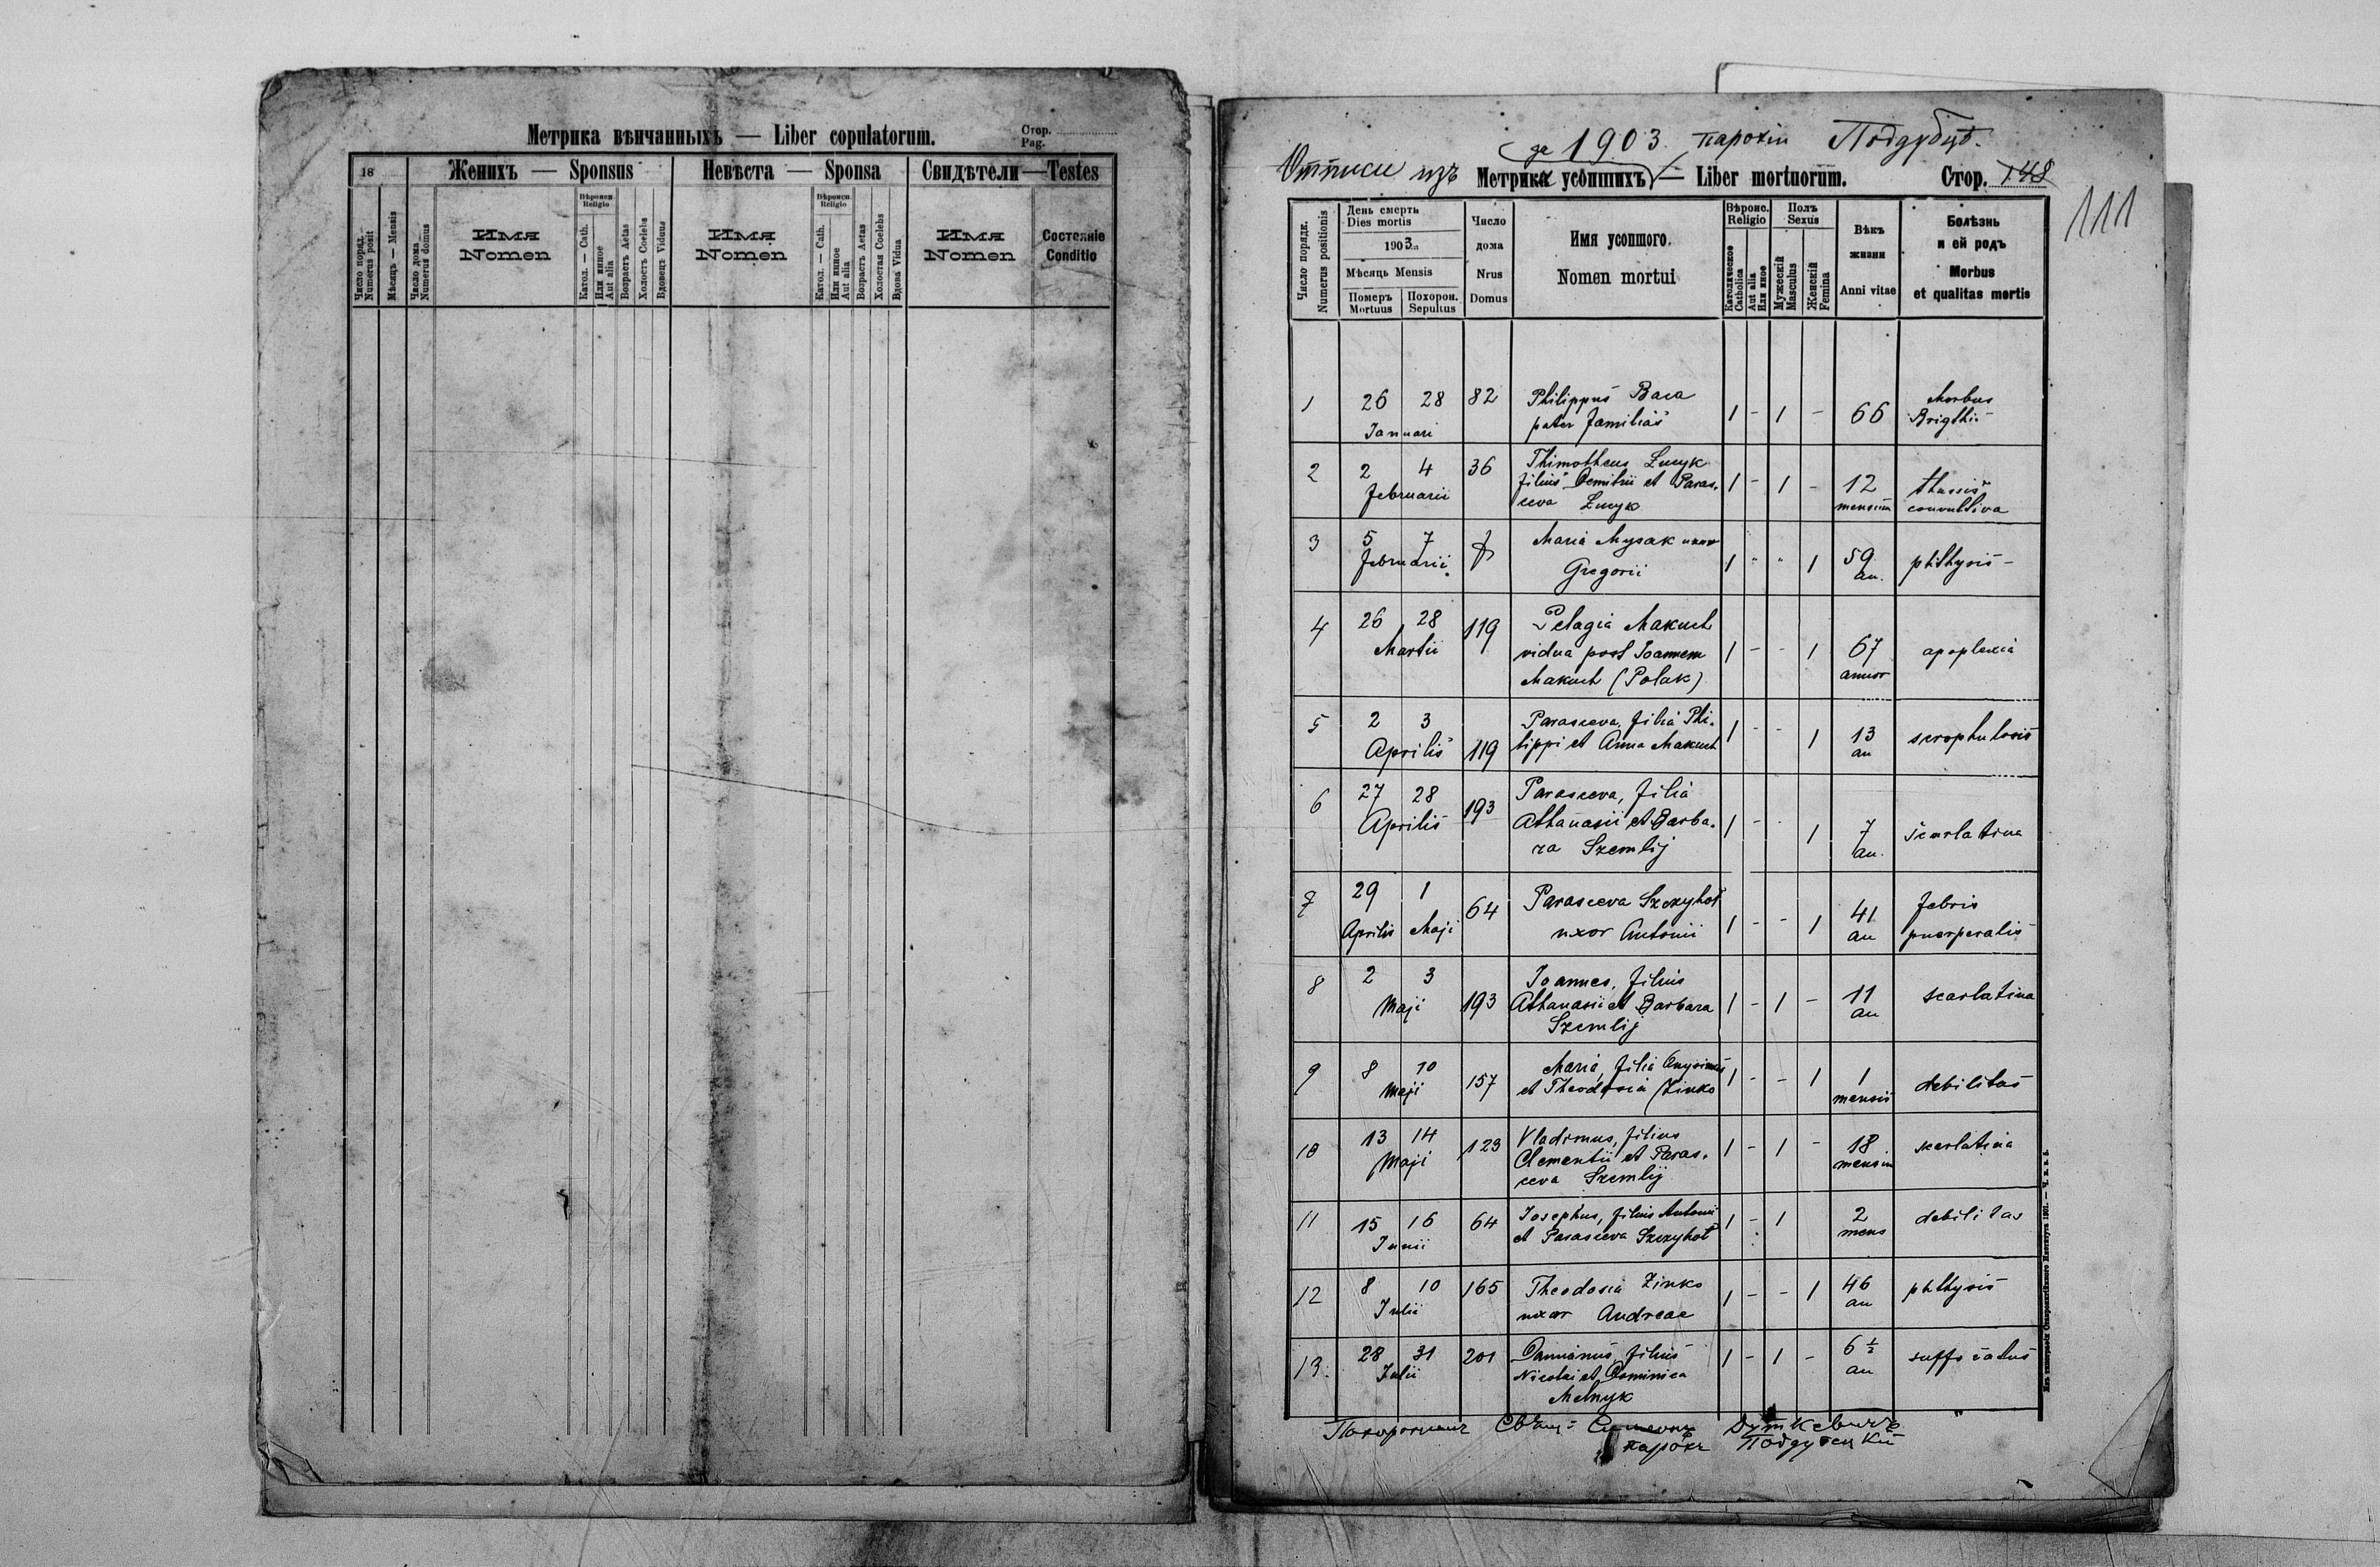 Метрика вѣнчанныхъ — Liber copulatorum.
Стор.
Pag.
18
Женихъ — Sponsus
Невѣста — Sponsa
Свидѣтели — Testes
Число поряд.
Numerus posit
Мѣсяцъ — Mensis
Число дома
Numerus domus
Имя
Nomen
Вѣроисп.
Religio
Катол. — Cath.
Или инное
Aut alia
Возрастъ Aetas
Холостъ Coelebs
Вдовецъ Viduus
Имя
Nomen
Вѣроисп.
Religio
Катол. — Cath.
Или инное
Aut alia
Возрастъ Aetas
Холостая Coelebs
Вдова Vidua
Имя
Nomen
Состояніе
Conditio
за 1903 парохіи Поддубцѣ.
Отписи изъ Метрика усопшихъ — Liber mortuorum.
Стор. 148
111
Число порядк.
Numerus positionis
День смерть
Dies mortis
1903
Мѣсяць Mensis
Померъ
Mortuus
Похорон.
Sepultus
Число
дома
Nrus
Domus
Имя усопшого.
Nomen mortui
Вѣроис.
Religio
Католическое
Catholica
Aut alia
Или иное
Полъ
Sexus
Мужескій
Masculus
Женскій
Femina
Вѣкъ
жизни
Anni vitae
Болѣзнь
и ей родъ
Morbus
et qualitas mortis
1 26 28 82 Philippus Baca 1 - 1 - 66 Morbus
Januari pater familias Brigthi
2 2 4 36 Thimotheus Lucyk 1 - 1 - 12 thussis
februarii filius Demitrii et Paras. mensium convultiva
ceva Lucyk
3 5 7 Maria Mysak uxor 1 - - 1 59 phthysis
februarii Gregorii an.
4 26 28 119 Pelagia Makuch 1 - - 1 67 apoplexia
Martii vidua post Joannem annor
Makuch (Polak)
5 2 3 119 Parasceva, filia Phi- 1 - - 1 13 scrophulosis
Aprilis lippi et Anna Makuch an
6 27 28 193 Parasceva, filia 1 - - 1 7 scarlatina
Aprilis Athanasii et Barba- an.
ra Szemlij
7 29 1 64 Parasceva Szczyhot 1 - - 1 41 febris
Aprilis Maji uxor Antonii an puerperalis
8 2 3 193 Joannes, filius 1 - 1 - 11 scarlatina
Maji Athanasii et Barbara an
Szemlij
9 8 10 157 Maria, filia Onysimus 1 - - 1 1 debilitas
Maji et Theodosia Zinko mensis
10 13 14 123 Vladimus, filius 1 - 1 - 18 scarlatina
Maji Clementii et Paras. mensium
ceva Szemlij
11 15 16 64 Josephus, filius Antoni 1 - 1 2 debilitas
Junii et Parasceva Szczyhot mens
12 8 10 165 Theodosia Zinko 1 - - 1 46 phthysis
Julii uxor Andreae an
13. 28 31 201 Damianus, filius 1 - 1 - 6 ½ suffocatus
Julii Nicolai et Dominica an
Melnyk
Свящ. Симеонъ Дуткевичъ
парохъ Поддубецкій